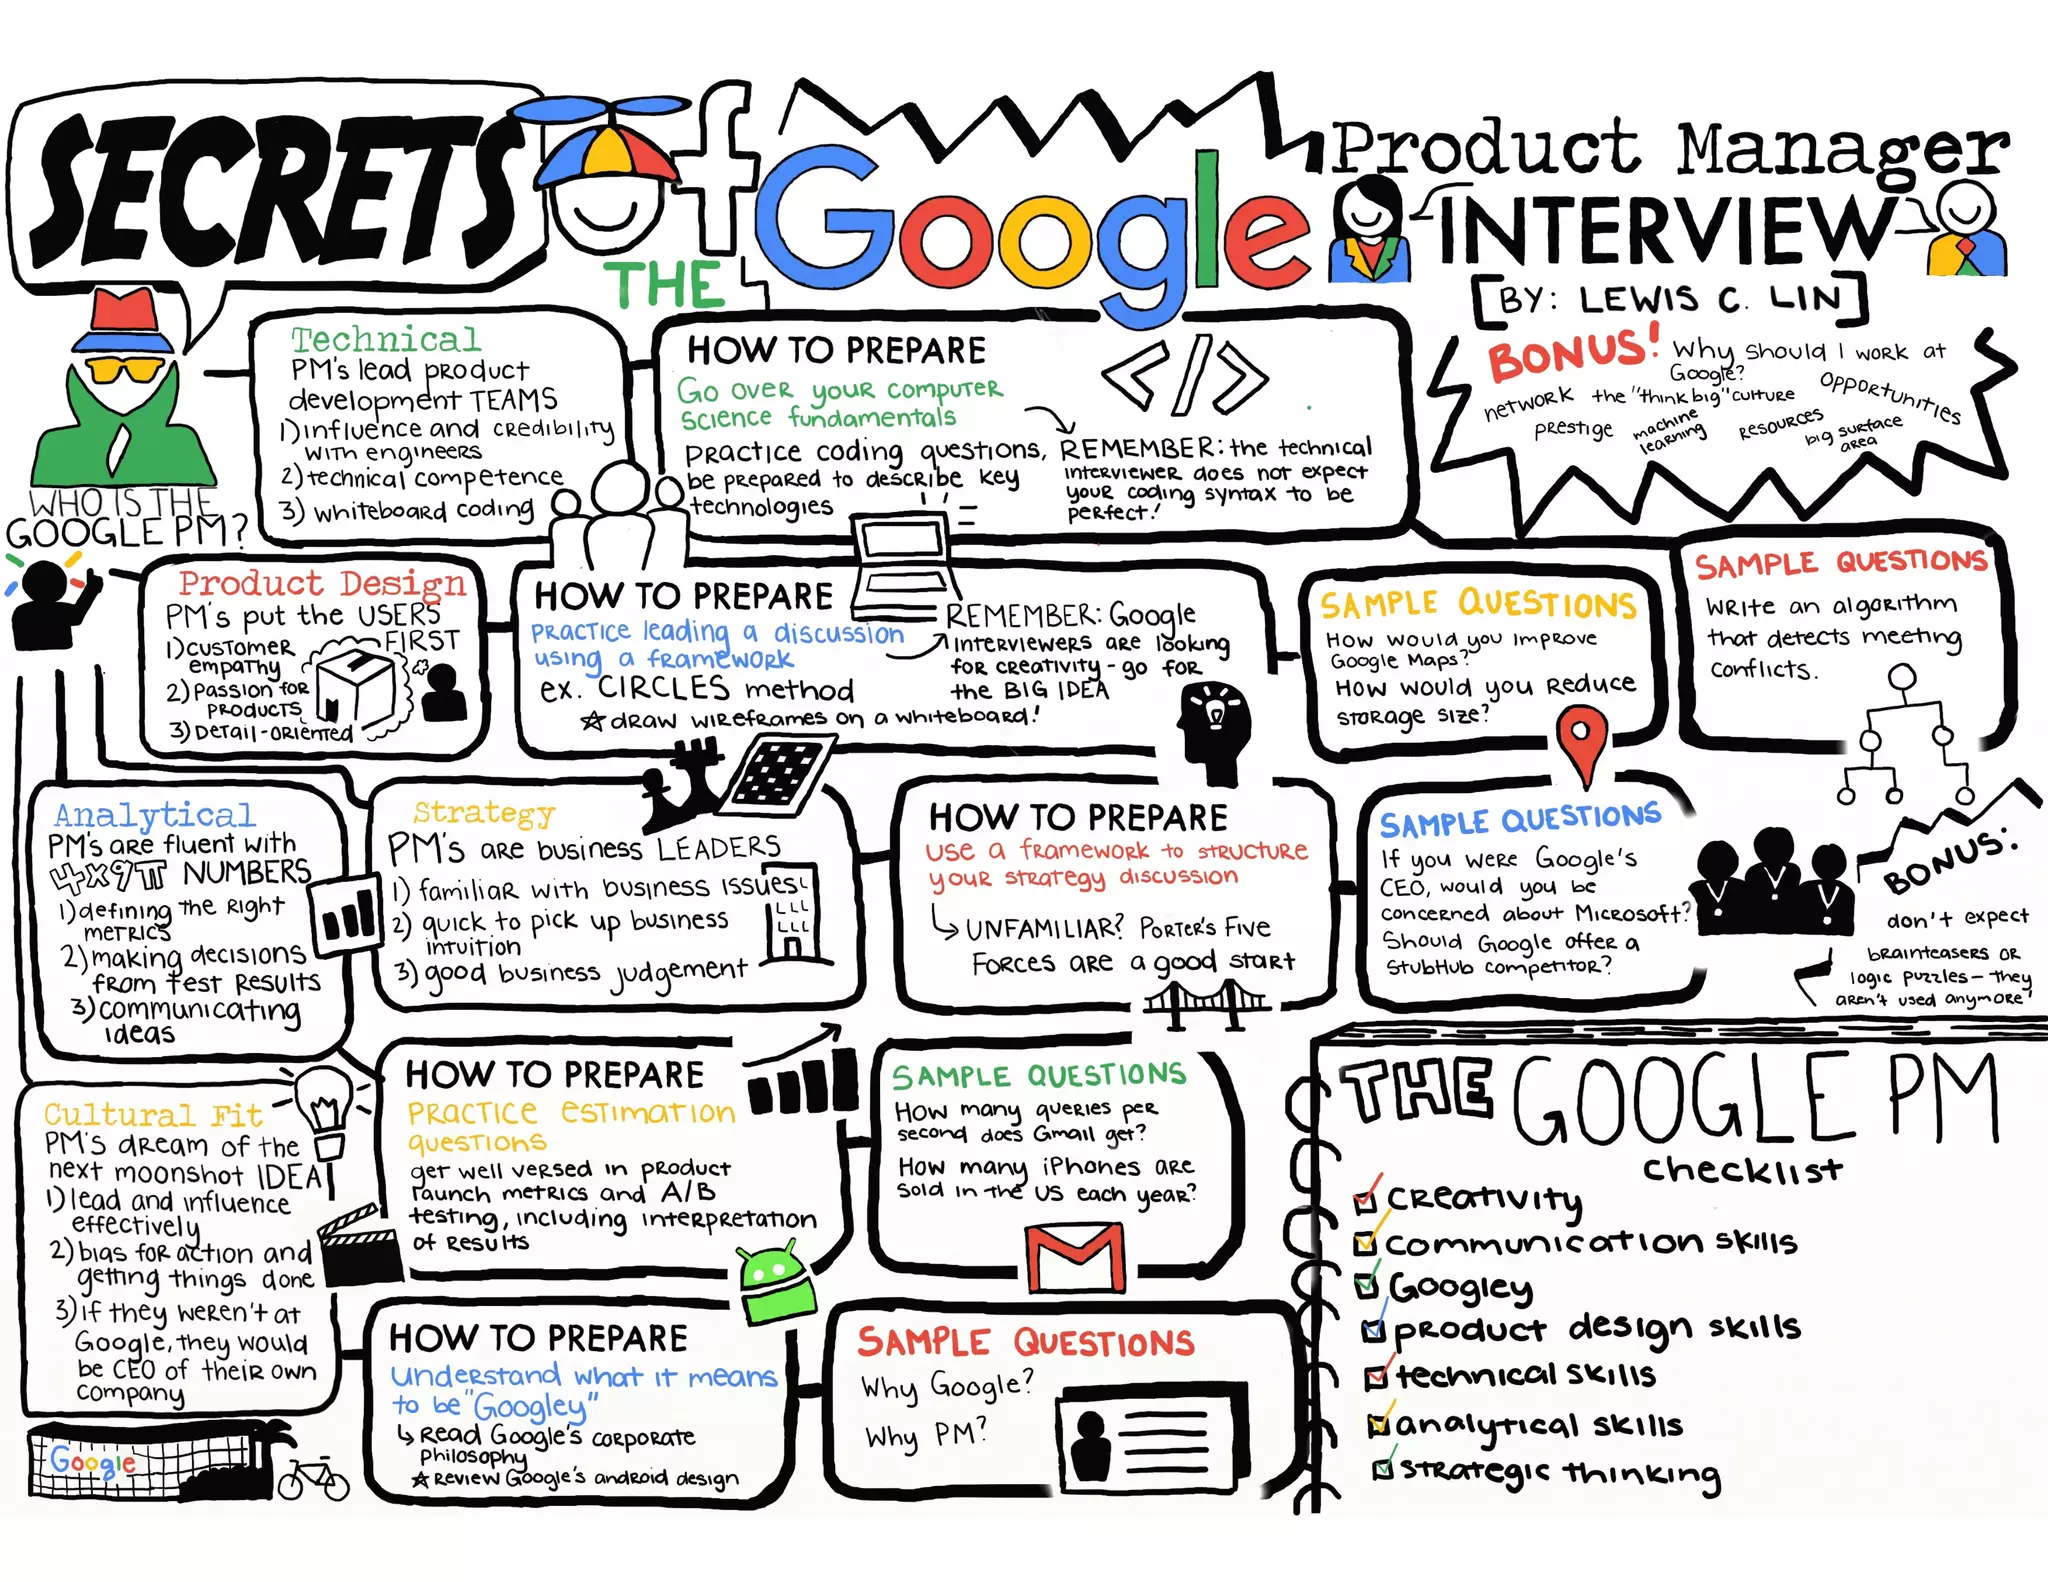 SECRETS Of
THE Google
Product Manager
INTERVIEW
[BY: LEWIS C. LIN]
BONUS! Why should I work at
Google?
network the "think big" culture opportunities
prestige machine learning resources big surface area
WHO IS THE
GOOGLE PM?
Technical
PM's lead product
development TEAMS
1) influence and credibility
with engineers
2) technical competence
3) whiteboard coding
HOW TO PREPARE
Go over your computer
science fundamentals
practice coding questions,
be prepared to describe key
technologies
REMEMBER: the technical
interviewer does not expect
your coding syntax to be
perfect!
</>
SAMPLE QUESTIONS
Write an algorithm
that detects meeting
conflicts.
Product Design
PM's put the USERS
FIRST
1) customer
empathy
2) passion for
products
3) detail-oriented
HOW TO PREPARE
practice leading a discussion
using a framework
ex. CIRCLES method
☆ draw wireframes on a whiteboard!
REMEMBER: Google
interviewers are looking
for creativity - go for
the BIG IDEA
SAMPLE QUESTIONS
How would you improve
Google Maps?
How would you reduce
storage size?
Analytical
PM's are fluent with
4x9π NUMBERS
1) defining the right
metrics
2) making decisions
from test results
3) communicating
ideas
Strategy
PM's are business LEADERS
1) familiar with business issues
2) quick to pick up business
intuition
3) good business judgement
HOW TO PREPARE
use a framework to structure
your strategy discussion
↳ UNFAMILIAR? Porter's Five
Forces are a good start
SAMPLE QUESTIONS
If you were Google's
CEO, would you be
concerned about Microsoft?
Should Google offer a
StubHub competitor?
BONUS:
don't expect
brainteasers or
logic puzzles - they
aren't used anymore!
HOW TO PREPARE
practice estimation
questions
get well versed in product
launch metrics and A/B
testing, including interpretation
of results
SAMPLE QUESTIONS
How many queries per
second does Gmail get?
How many iPhones are
sold in the US each year?
Cultural Fit
PM's dream of the
next moonshot IDEA
1) lead and influence
effectively
2) bias for action and
getting things done
3) if they weren't at
Google, they would
be CEO of their own
company
Google
HOW TO PREPARE
understand what it means
to be "Googley"
↳ Read Google's corporate
philosophy
☆ Review Google's android design
SAMPLE QUESTIONS
Why Google?
Why PM?
THE GOOGLE PM
checklist
creativity
communication skills
Googley
product design skills
technical skills
analytical skills
strategic thinking